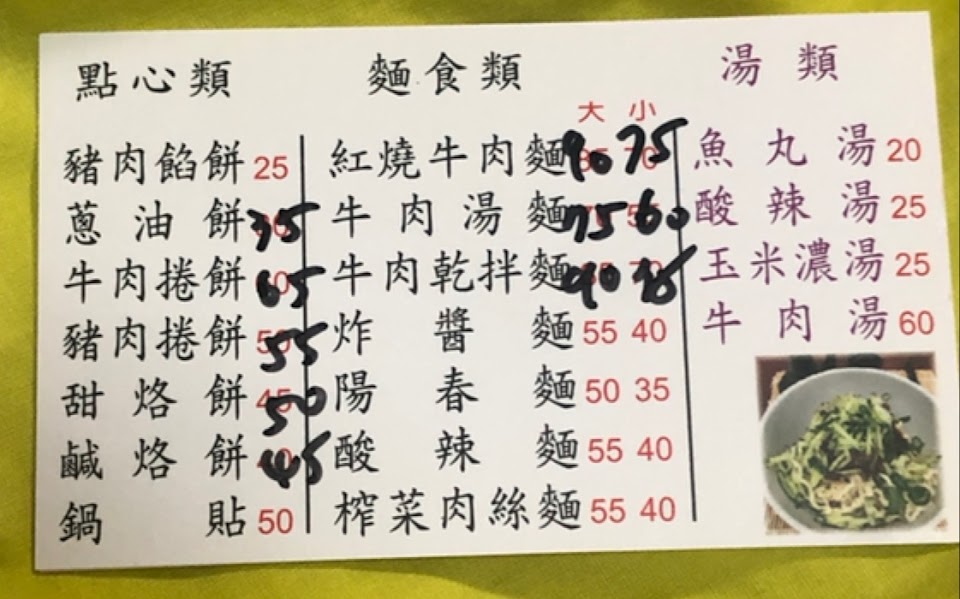 點心類
豬肉餡餅 25
蔥油餅 35
牛肉捲餅 65
豬肉捲餅 55
甜烙餅 50
鹹烙餅 45
鍋貼 50
麵食類
大 小
紅燒牛肉麵 90 75
牛肉湯麵 75 60
牛肉乾拌麵 90
炸醬麵 55 40
陽春麵 50 35
酸辣麵 55 40
榨菜肉絲麵 55 40
湯類
魚丸湯 20
酸辣湯 25
玉米濃湯 25
牛肉湯 60